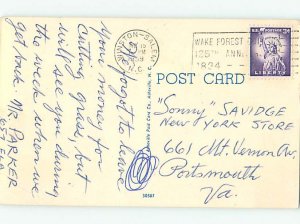 I forgot to leave
your money for
cutting grass, but
will see you during
the week when we
get back. Mr PARKER
WINSTON-SALEM
N.C.
WAKE FOREST
125TH ANNI
1834
U.S. POSTAGE
3¢
LIBERTY
POST CARD
"Sonny" SAVIDGE
NEW YORK STORE
661 Mt. Vernon Av.
Portsmouth
Va.